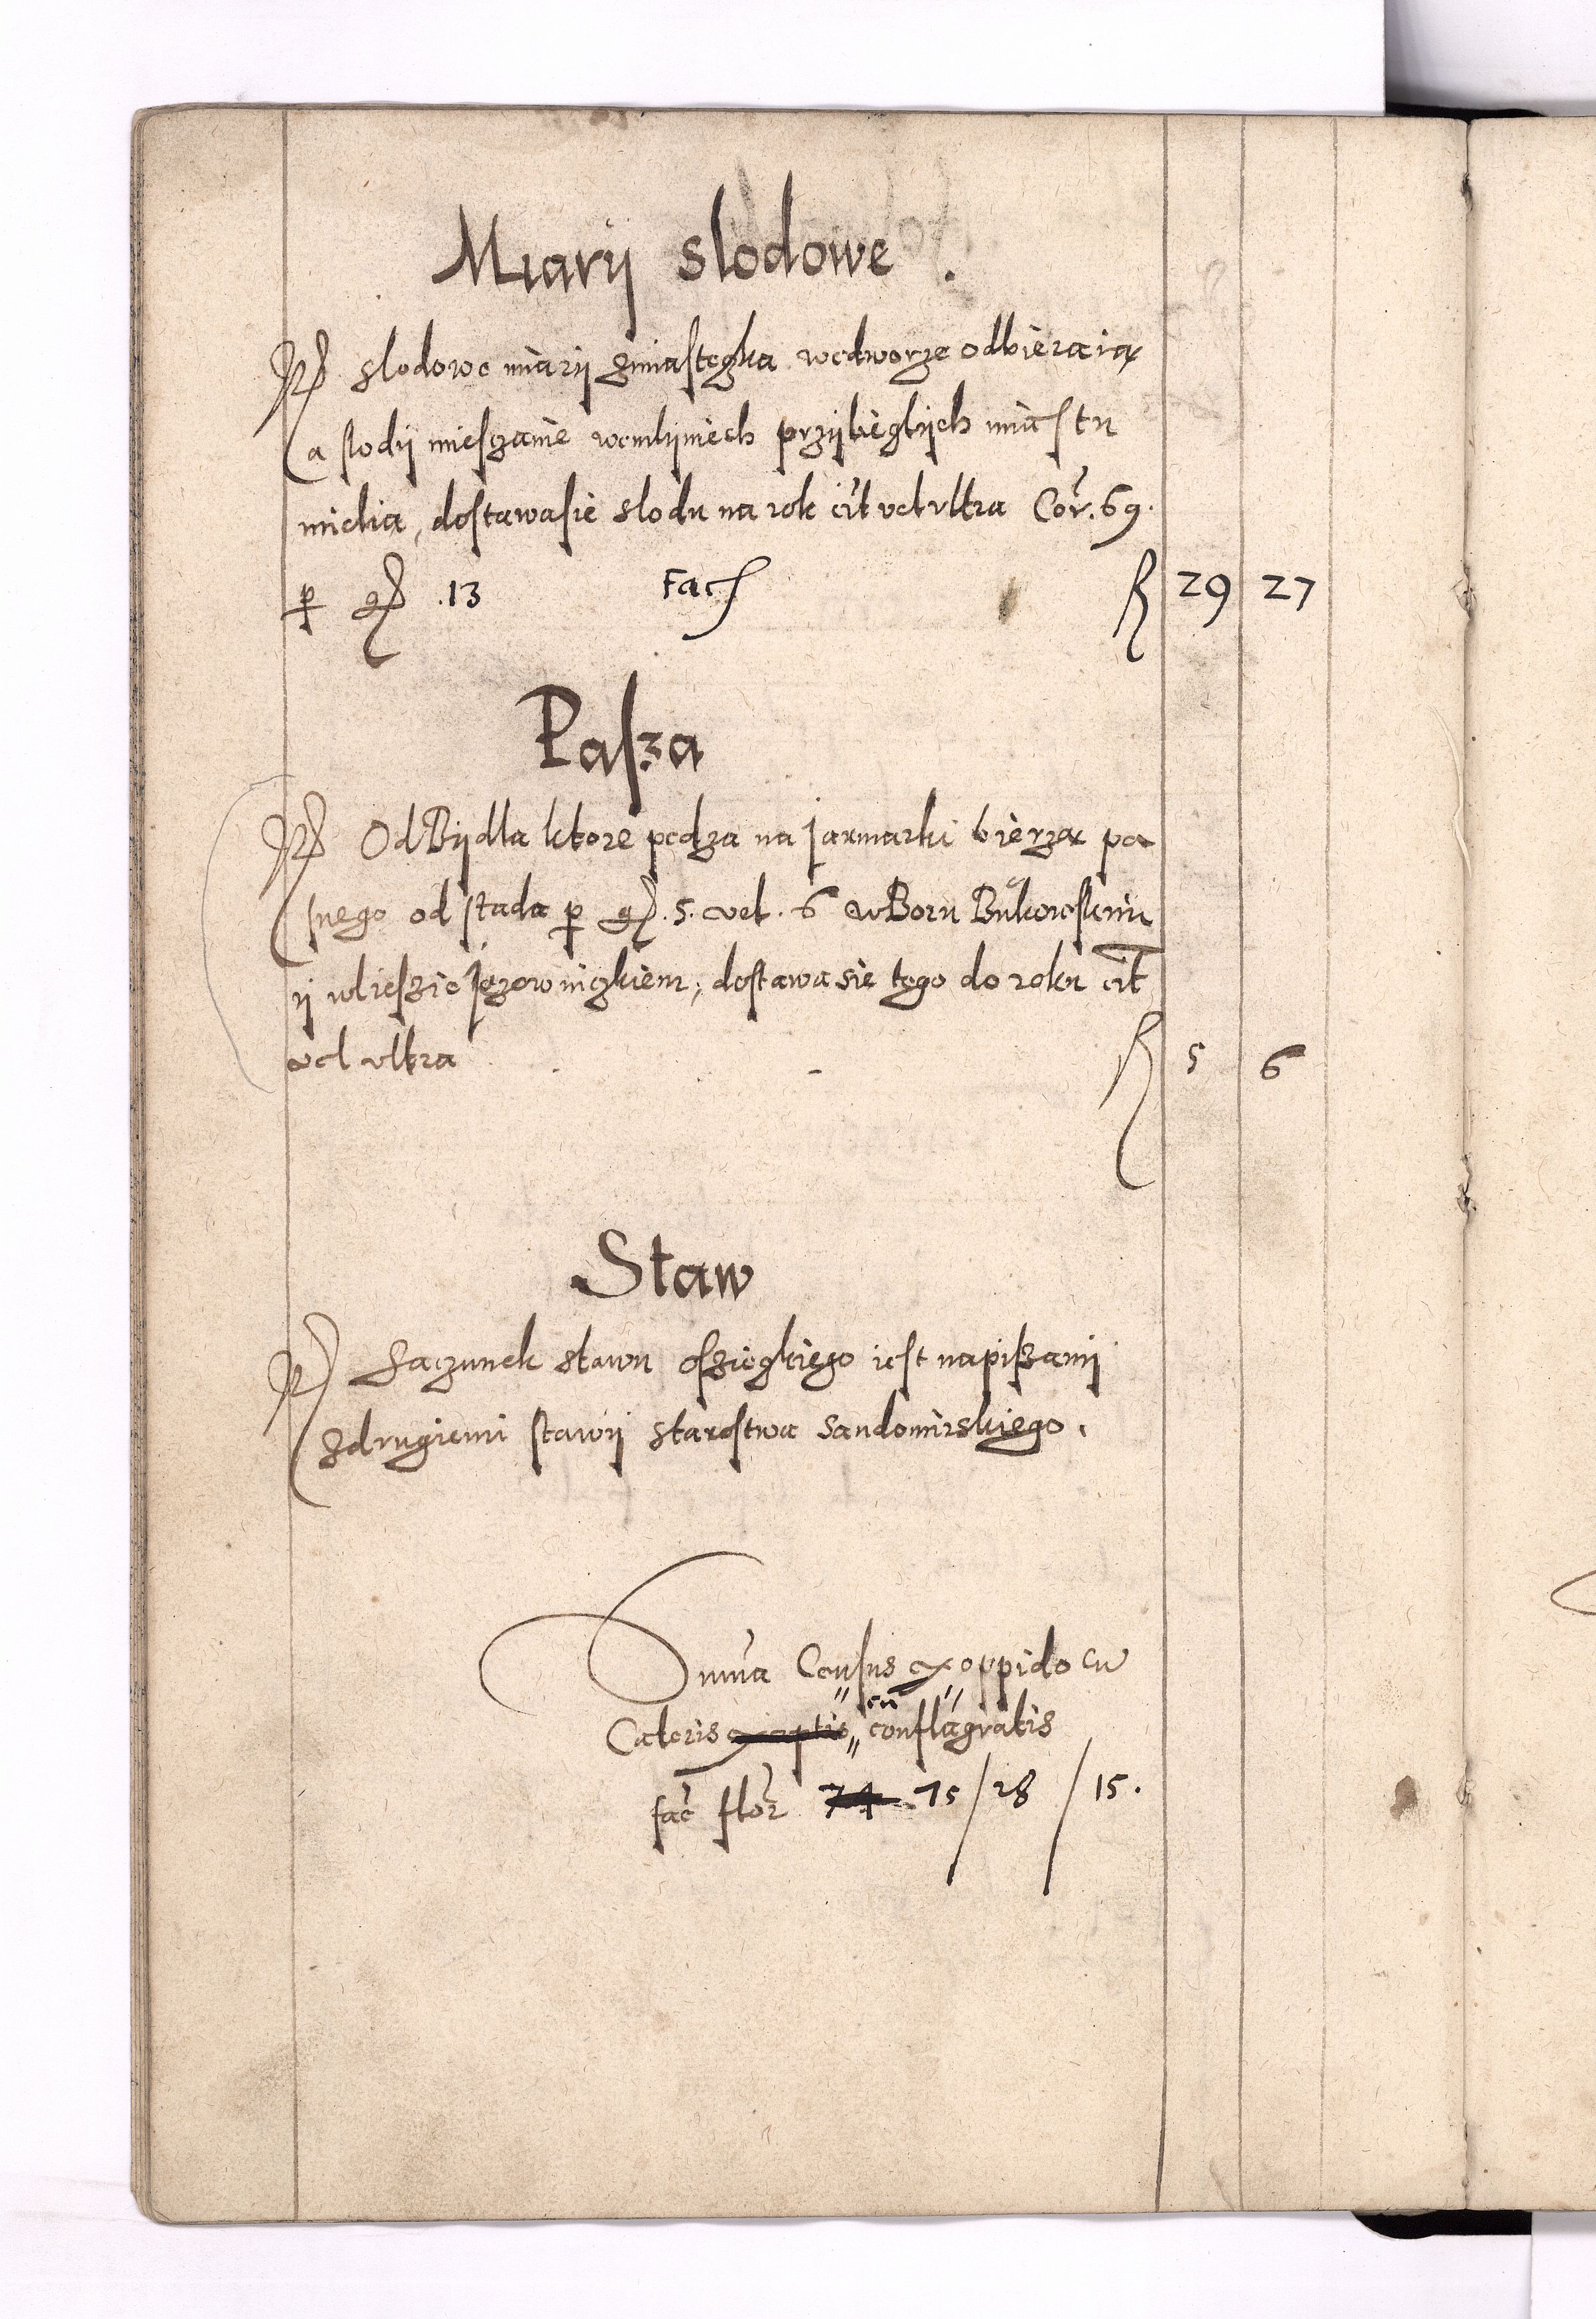 Miary slodowe.
Itē slodowe miary zmiasteczka wedworze odbieraią
a slody mieszczanie wemlyniech przyliegłych miastu
mielia, dostawasie slodu na rok cit vel vltra Cor. 69.
p gr. 13 Fac R 29 27
Pasza
Itē Od Bydla ktore pedza na Jarmarki bierzą pa
snego od stada p gr. 5. vel. 6 w Boru Bukowskim
y wlieszie Jezownizkiem, dostawa sie tego do roku cit
vel vltra R 5 6
Staw
Itē Saczunek stawu oszieczkiego iest napiszany
zdrugiemi stawy starostwa Sandomirskiego.
Summa Census ex oppido cu
cū
Cateris exaptis conflagratis
fac flor 74 75/28/15.